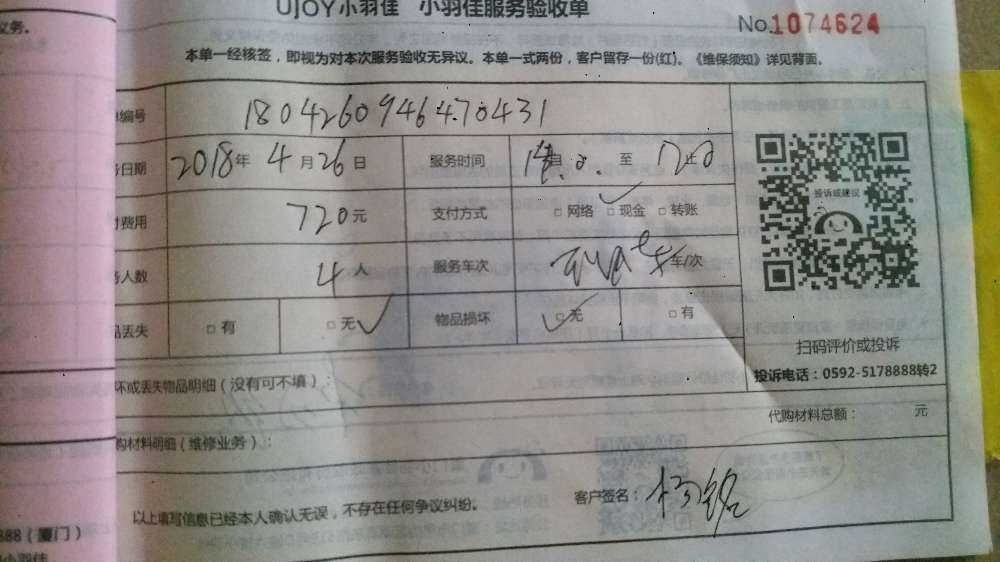 义务。
UJOY小羽佳 小羽佳服务验收单
No.1074624
本单一经核签，即视为对本次服务验收无异议。本单一式两份，客户留存一份(红)。《维保须知》详见背面。
编号 180426094647.0431
日期 2018年 4月26日 服务时间 至
费用 720元 支付方式 □网络 □现金 ✓ □转账
人数 4人 服务车次 车/次
品丢失 □有 □无 ✓ 物品损坏 □无 ✓ □有
投诉或建议
扫码评价或投诉
投诉电话：0592-5178888转2
坏或丢失物品明细（没有可不填）：
代购材料总额： 元
购材料明细（维修业务）：
以上填写信息已经本人确认无误，不存在任何争议纠纷。
客户签名：杨铭
888（厦门）
小羽佳